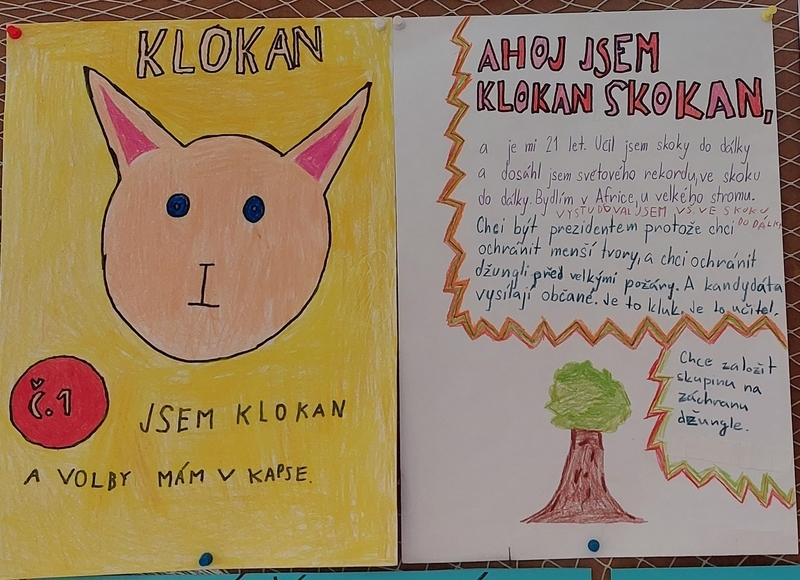 KLOKAN
č.1
JSEM KLOKAN
A VOLBY MÁM V KAPSE.
AHOJ JSEM
KLOKAN SKOKAN,
a je mi 21 let. Učil jsem skoky do dálky
a dosáhl jsem světového rekordu, ve skoku
do dálky. Bydlím v Africe, u velkého stromu.
VYSTUDOVAL JSEM VŠ VE SKOKU
DO DÁLKY
Chci být prezidentem protože chci
ochránit menší tvory, a chci ochránit
džungli před velkými požáry. A kandydáta
vysílají občané. Je to kluk. Je to učitel.
Chce založit
skupinu na
záchranu
džungle.